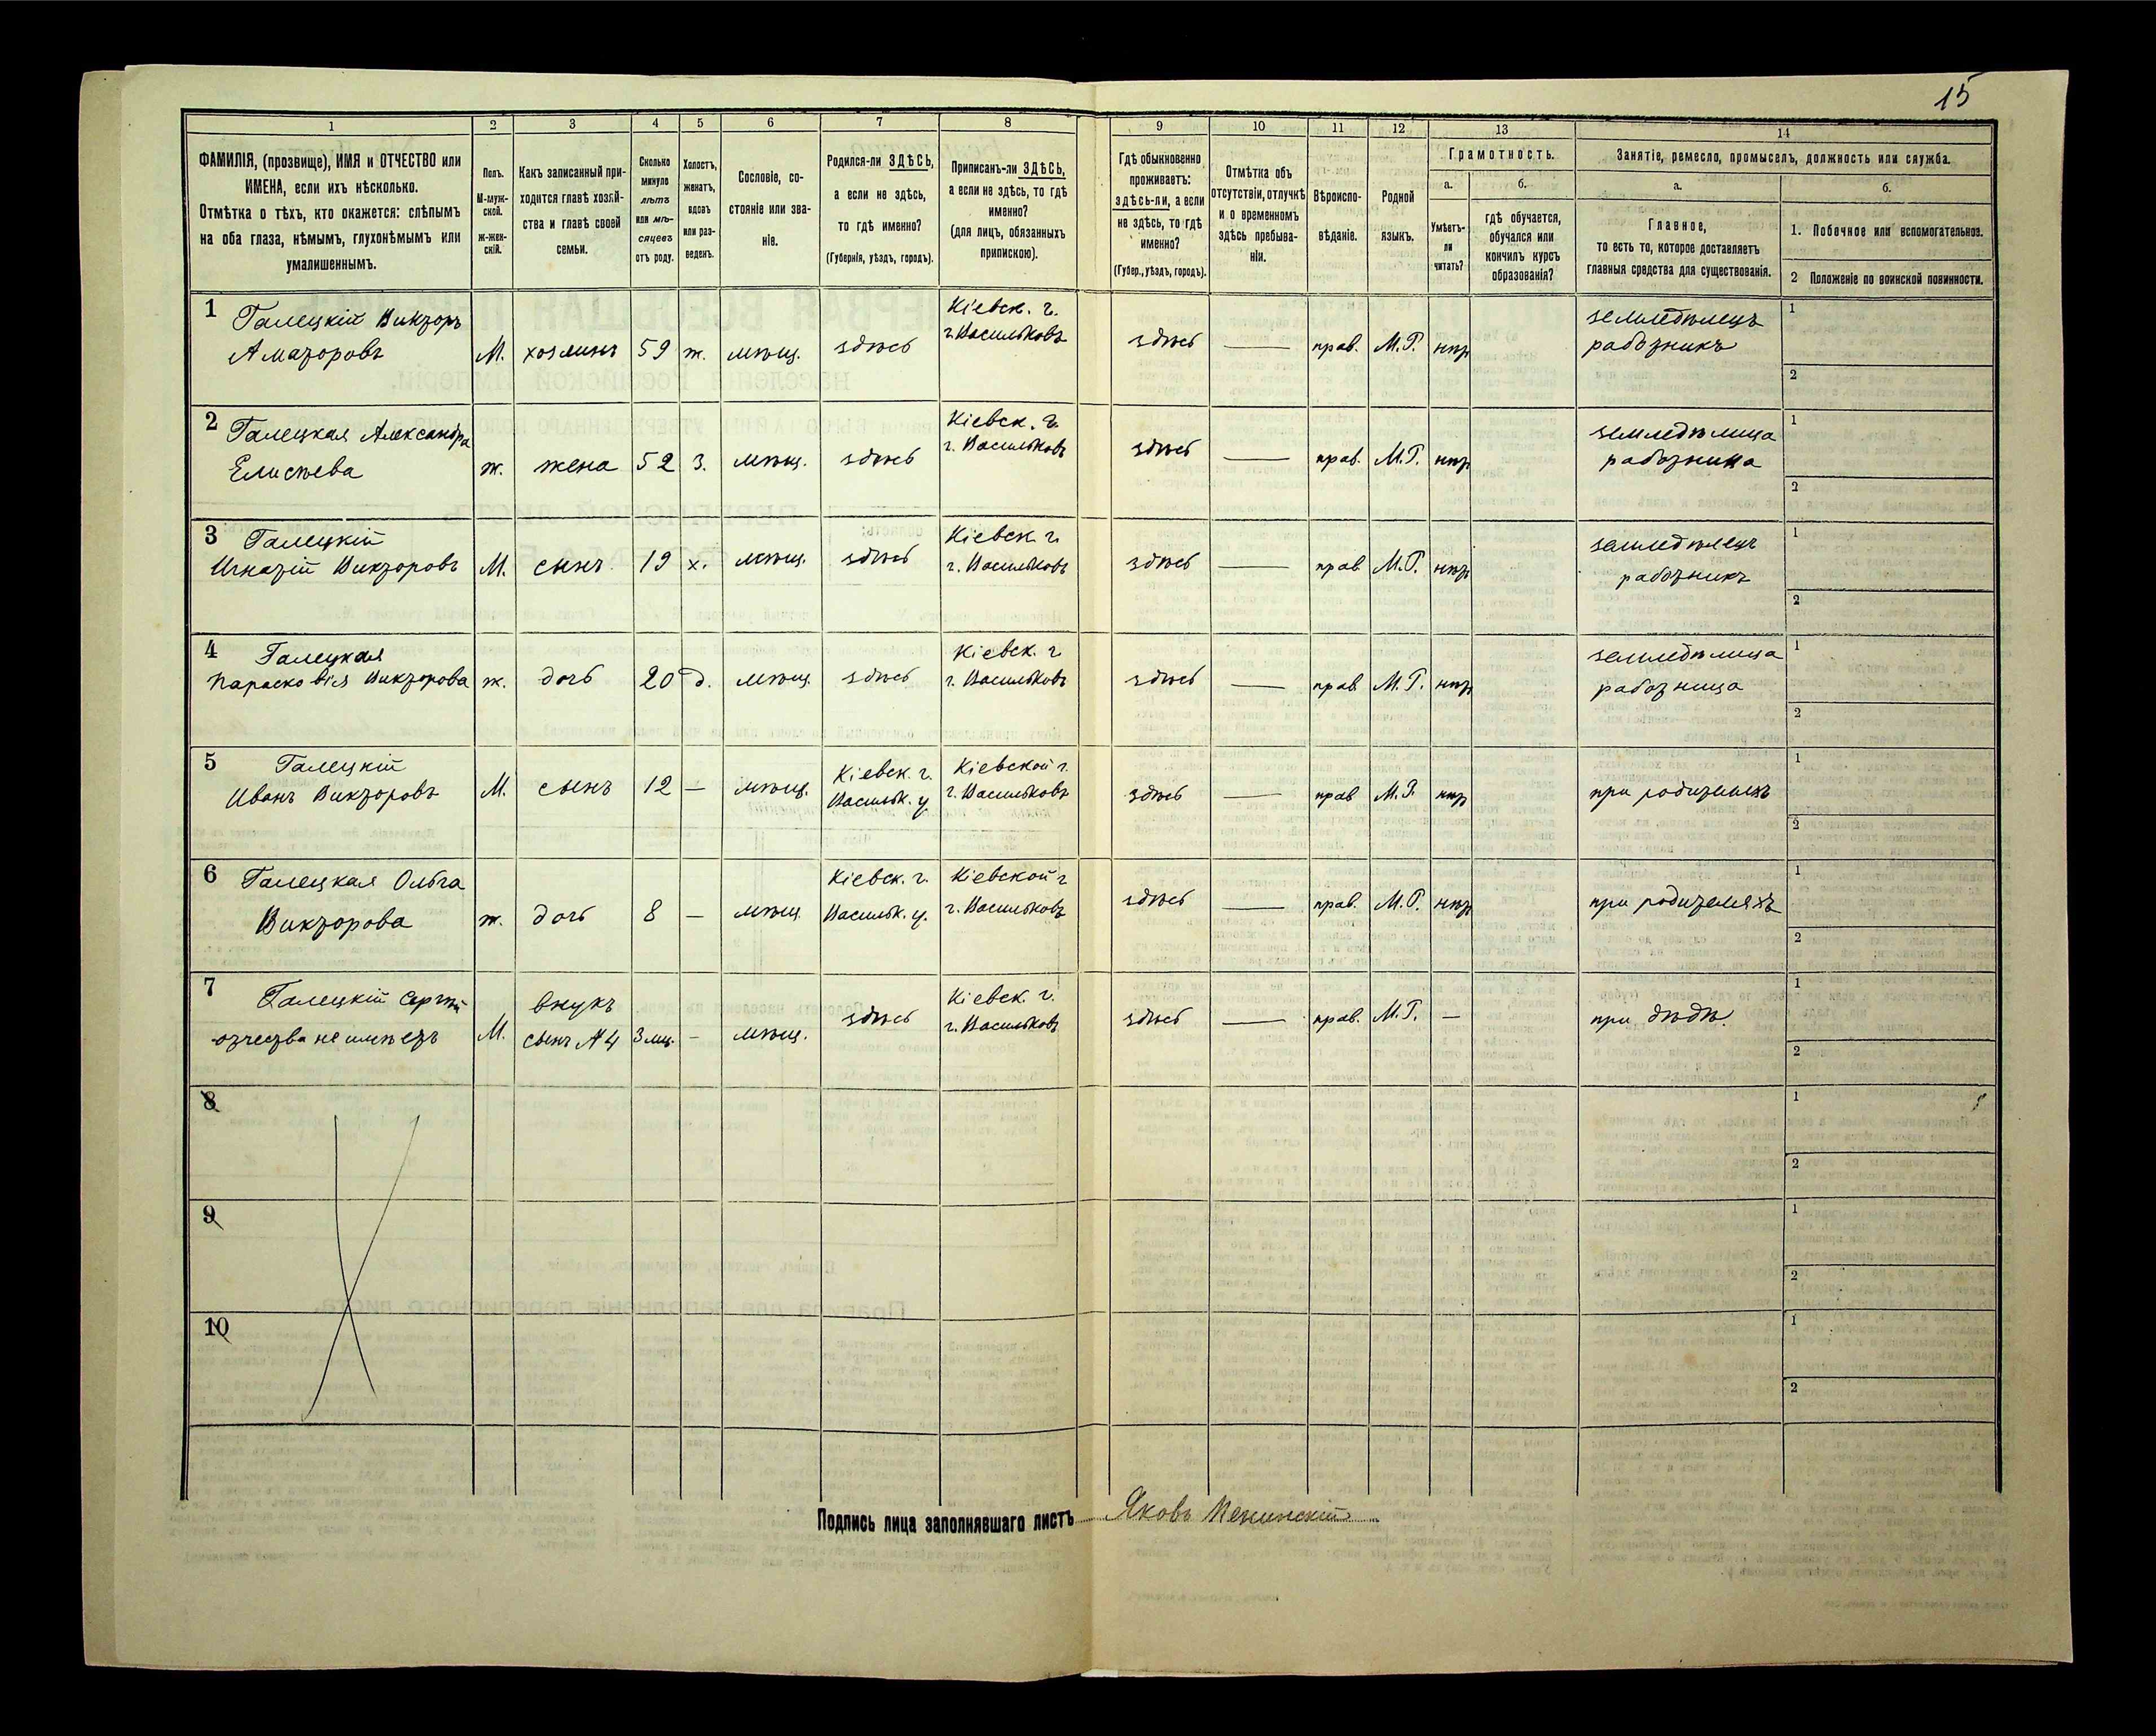 15
1 2 3 4 5 6 7 8 9 10 11 12 13 14
ФАМИЛІЯ, (прозвище), ИМЯ и ОТЧЕСТВО или
ИМЕНА, если ихъ нѣсколько.
Отмѣтка о тѣхъ, кто окажется: слѣпымъ
на оба глаза, нѣмымъ, глухонѣмымъ или
умалишеннымъ.
Полъ.
М-муж-
ской.
ж-жен-
скій.
Какъ записанный при-
ходится главѣ хозяй-
ства и главѣ своей
семьи.
Сколько
минуло
лѣтъ
или мѣ-
сяцевъ
отъ роду.
Холостъ,
женатъ,
вдовъ
или раз-
веденъ.
Сословіе, со-
стояніе или зва-
ніе.
Родился-ли ЗДѢСЬ,
а если не здѣсь,
то гдѣ именно?
(Губернія, уѣздъ, городъ).
Приписанъ-ли ЗДѢСЬ,
а если не здѣсь, то гдѣ
именно?
(для лицъ, обязанныхъ
припискою).
Гдѣ обыкновенно
проживаетъ:
здѣсь-ли, а если
не здѣсь, то гдѣ
именно?
(Губер., уѣздъ, городъ).
Отмѣтка объ
отсутствіи, отлучкѣ
и о временномъ
здѣсь пребыва-
ніи.
Вѣроиспо-
вѣданіе.
Родной
языкъ.
Грамотность.
а.
Умѣетъ-
ли
читать?
б.
гдѣ обучается,
обучался или
кончилъ курсъ
образованія?
Занятіе, ремесло, промыселъ, должность или служба.
а.
Главное,
то есть то, которое доставляетъ
главныя средства для существованія.
б.
1. Побочное или вспомогательное.
2 Положеніе по воинской повинности.
1 Галецкій Викторъ Кіевск. г. земледѣлецъ 1
Аматоровъ М. хозяинъ 59 ж. мѣщ. здѣсь г. Васильковъ здѣсь — прав. М.Р. нѣтъ работникъ
2
2 Галецкая Александра Кіевск. г. земледѣлица 1
Елисѣева ж. жена 52 з. мѣщ. здѣсь г. Васильковъ здѣсь — прав. М.Р. нѣтъ работница
2
3 Галецкій Кіевск. г. земледѣлецъ 1
Игнатій Викторовъ М. сынъ 19 х. мѣщ. здѣсь г. Васильковъ здѣсь — прав. М.Р. нѣтъ работникъ
2
4 Галецкая Кіевск. г. земледѣлица 1
Парасковія Викторова ж. дочь 20 д. мѣщ. здѣсь г. Васильковъ здѣсь — прав. М.Р. нѣтъ работница
2
5 Галецкій Кіевск. г. Кіевской г. 1
Иванъ Викторовъ М. сынъ 12 — мѣщ. Васильк. у. г. Васильковъ здѣсь — прав. М.Р. нѣтъ при родителяхъ
2
6 Галецкая Ольга Кіевск. г. Кіевской г. 1
Викторова ж. дочь 8 — мѣщ. Васильк. у. г. Васильковъ здѣсь — прав. М.Р. нѣтъ при родителяхъ
2
7 Галецкій Сергѣй внукъ Кіевск. г. 1
отчества не имѣетъ М. сынъ №4 3 мц. – мѣщ. здѣсь г. Васильковъ здѣсь — прав. М.Р. — при дѣдѣ.
2
8 1
2
9 1
2
10 1
2
Подпись лица заполнявшаго листъ Яковъ